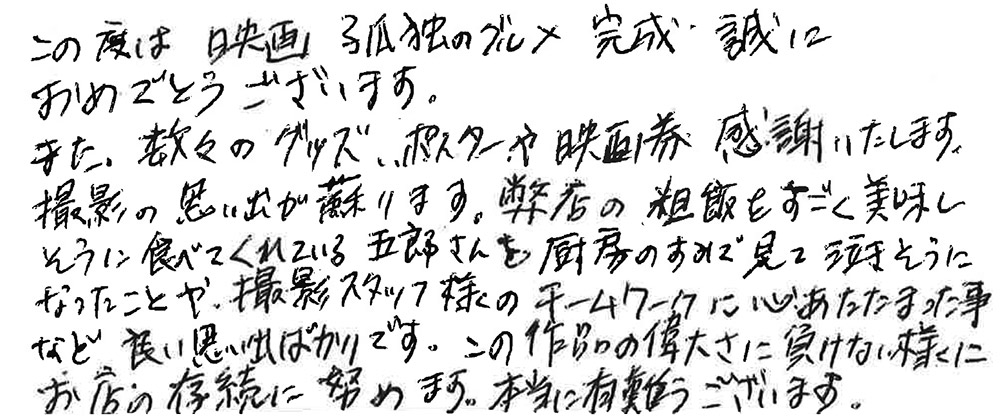 この度は 映画 孤独のグルメ 完成 誠に
おめでとうございます。
また、数々のグッズ、ポスターや映画券 感謝いたします。
撮影の思い出が蘇ります。弊店の粗飯をすごく美味し
そうに食べてくれている五郎さんを厨房のすみで見て泣きそうに
なったことや、撮影スタッフ様々のチームワークに心あたたまった事
など良い思い出ばかりです。この作品の偉大さに負けない様に
お店の存続に努めます。本当に有難うございます。